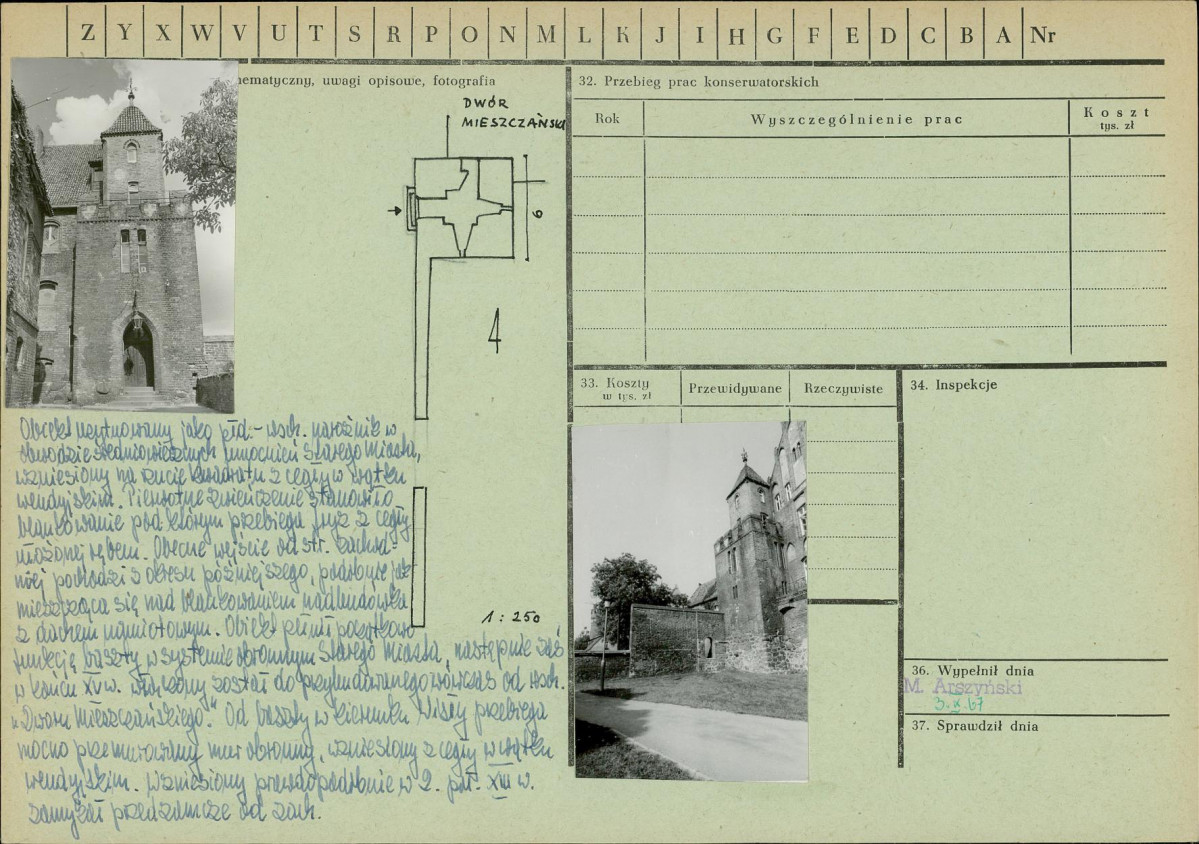 Z Y X W V U T S R P O N M L K J I H G F E D C B A Nr
ematyczny, uwagi opisowe, fotografia
DWÓR
MIESZCZAŃSKI
9
4
1:250
Obiekt usytuowany jako płd.-wsch. narożnik w
obwodzie średniowiecznych umocnień Starego Miasta,
wzniesiony na rzucie kwadratu z cegły w wątku
wendyjskim. Pierwotne zwieńczenie stanowiło
blankowanie pod którym przebiega fryz z cegły
ułożonej rębem. Obecne wejście od str. zachod-
niej pochodzi z okresu późniejszego, podobnie jak
mieszcząca się nad blankowaniem nadbudówka
z dachem namiotowym. Obiekt pełnił początkowo
funkcję baszty w systemie obronnym Starego Miasta, następnie zaś
w końcu XV w. włączony został do przybudowanego wówczas od wsch.
"Dworu Mieszczańskiego". Od baszty w kierunku Wisły przebiega
mocno przemurowany mur obronny, wzniesiony z cegły w wątku
wendyjskim. Wzniesiony prawdopodobnie w 2. poł. XIII w.
zamykał przedzamcze od zach.
32. Przebieg prac konserwatorskich
Rok Wyszczególnienie prac Koszt
tys. zł
33. Koszty
w tys. zł
Przewidywane Rzeczywiste
34. Inspekcje
36. Wypełnił dnia
M. Arszyński
3.X.67
37. Sprawdził dnia